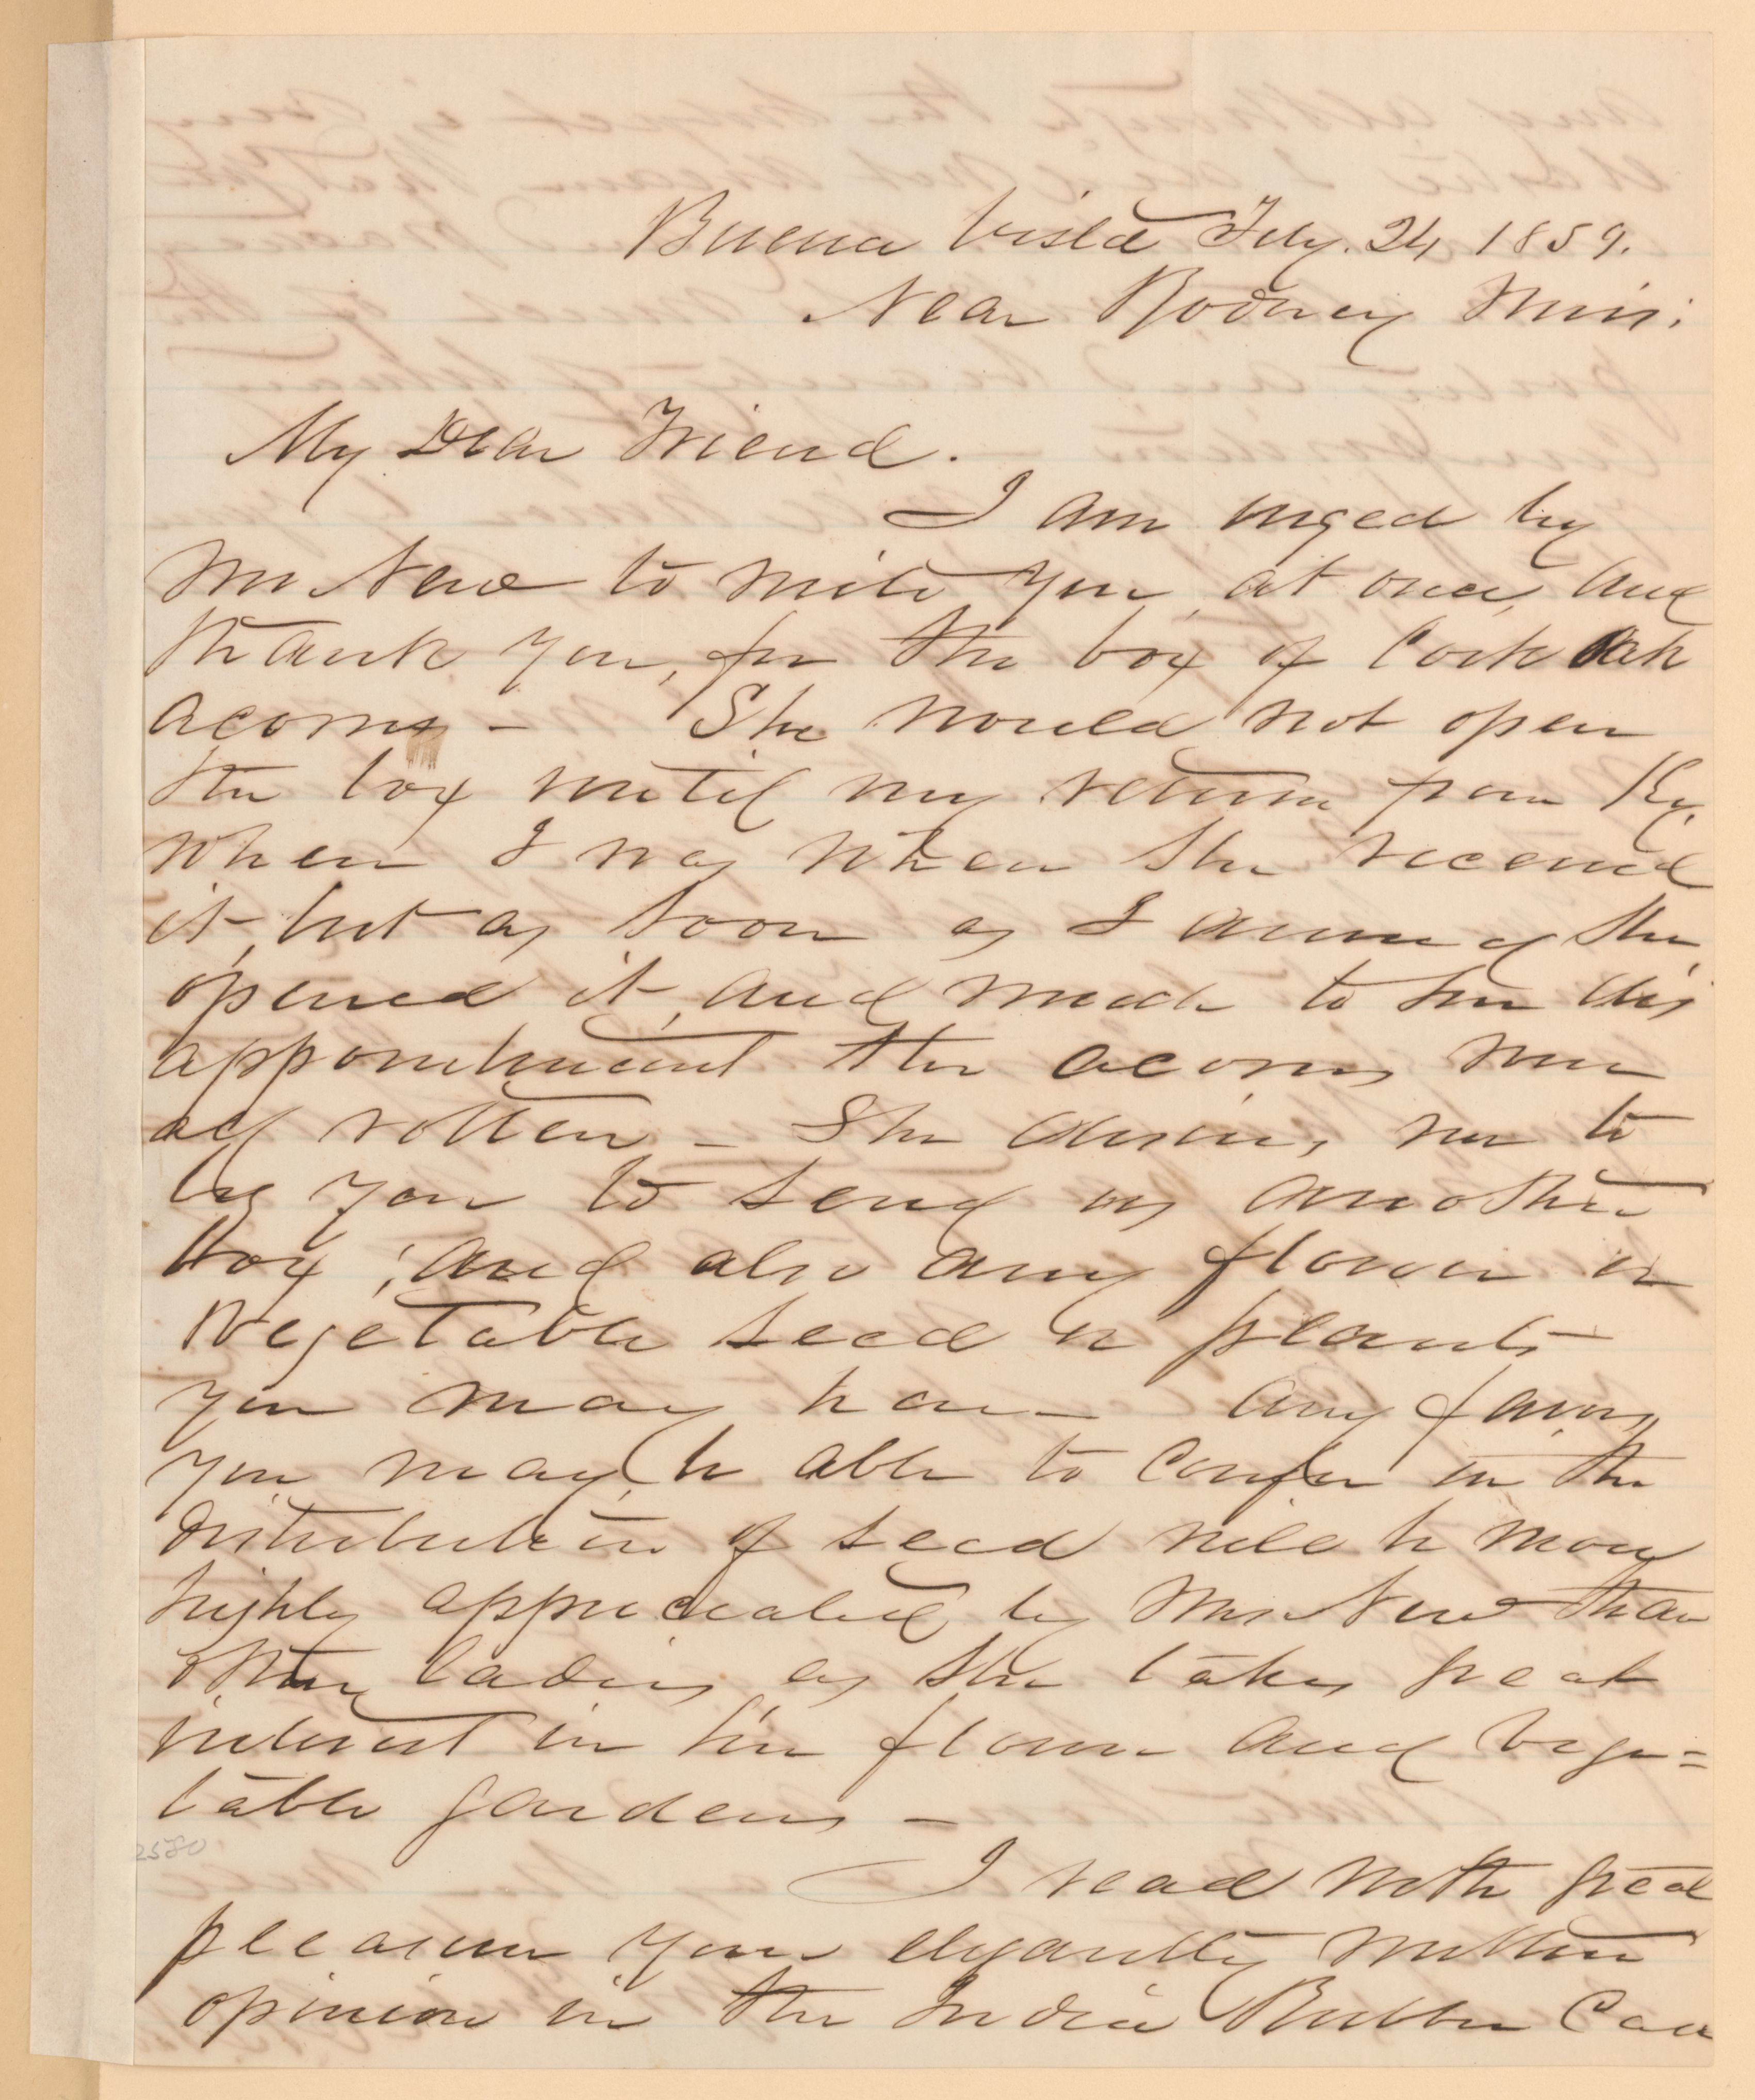 Buena Vista Feby. 24 1859.
Near Rodney Miss:
My Dear Friend.
I am urged by
Mrs New to write you, at once, and
thank you, for the box of Cork Oak
acorns – She would not open
the box until my return from Ky,
where I was when she received
it, but as soon as I arrived she
opened it, and much to her dis
appointment the acorns were
all rotten – She desires me to
beg you to send us another
box; and also any flower or
Vegetable seed or plants
you may have – Any favors
you may be able to confer in the
distribution of seed will be more
highly appreciated by Mrs New than
other ladies as she takes great
interest in her flower and vege=
table gardens –
2580
I read with great
pleasure your elegantly written
opinion in the India Rubber Case